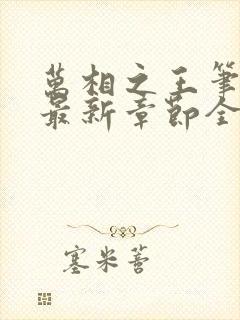 萬相之王筆
最新章節全
塞米蒈